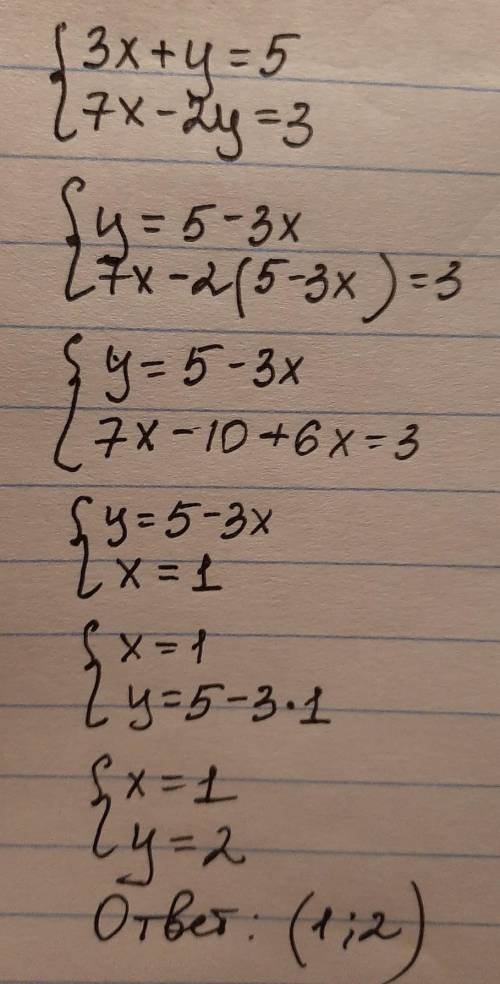 { 3x + y = 5
7x - 2y = 3
{ y = 5 - 3x
7x - 2(5 - 3x) = 3
{ y = 5 - 3x
7x - 10 + 6x = 3
{ y = 5 - 3x
x = 1
{ x = 1
y = 5 - 3 · 1
{ x = 1
y = 2
Ответ: (1; 2)